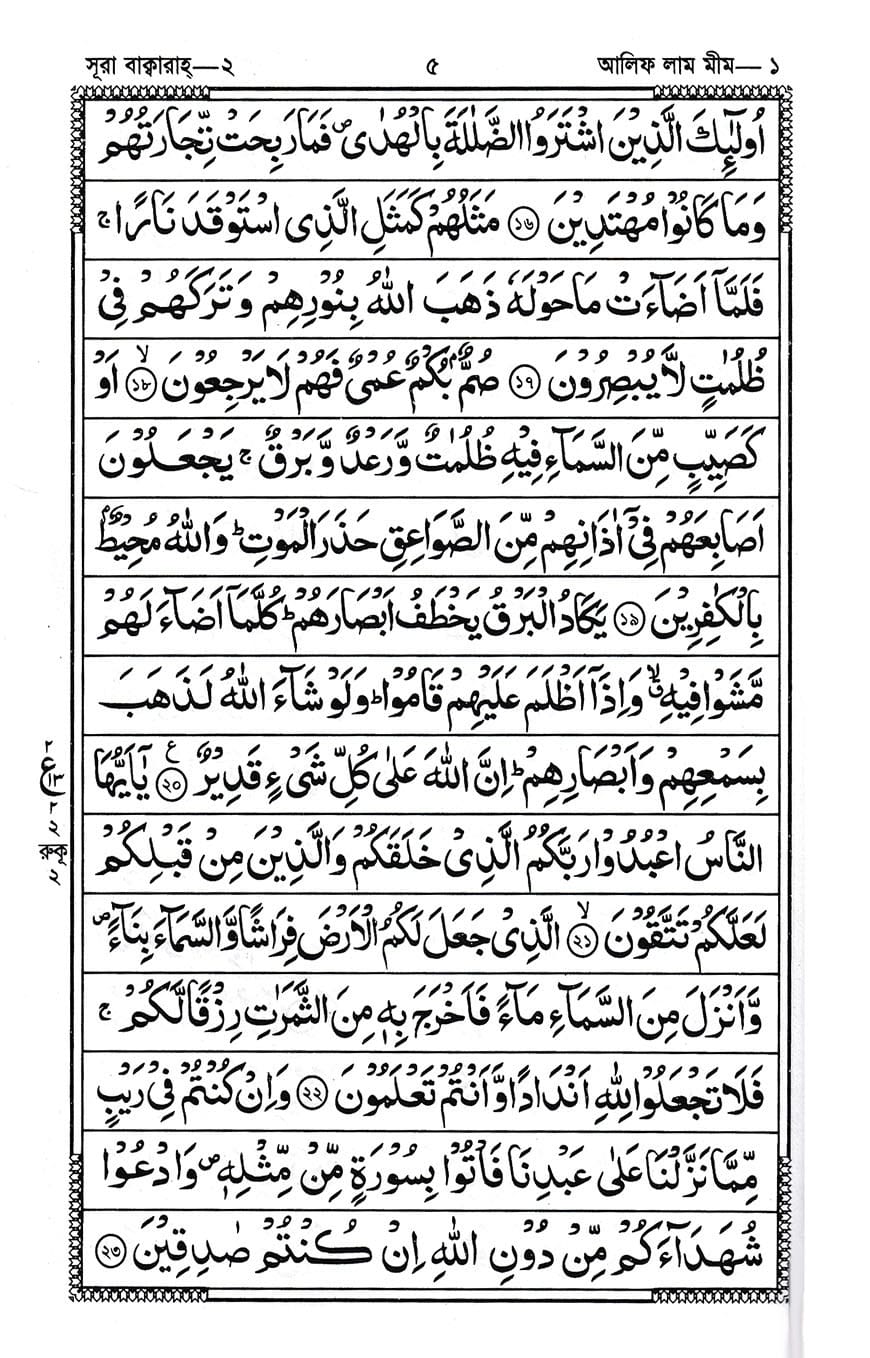 সূরা বাক্বারাহ্—২ ৫ আলিফ লাম মীম—১
اُولٰٓئِكَ الَّذِيْنَ اشْتَرَوُا الضَّلٰلَةَ بِالْهُدٰى ۪ فَمَا رَبِحَتْ تِّجَارَتُهُمْ
وَمَا كَانُوْا مُهْتَدِيْنَ ⟨১৬⟩ مَثَلُهُمْ كَمَثَلِ الَّذِى اسْتَوْقَدَ نَارًا ۚ
فَلَمَّآ اَضَآءَتْ مَا حَوْلَهٗ ذَهَبَ اللّٰهُ بِنُوْرِهِمْ وَتَرَكَهُمْ فِىْ
ظُلُمٰتٍ لَّا يُبْصِرُوْنَ ⟨১৭⟩ صُمٌّۢ بُكْمٌ عُمْىٌ فَهُمْ لَا يَرْجِعُوْنَ ۙ ⟨১৮⟩ اَوْ
كَصَيِّبٍ مِّنَ السَّمَآءِ فِيْهِ ظُلُمٰتٌ وَّرَعْدٌ وَّبَرْقٌ ۚ يَجْعَلُوْنَ
اَصَابِعَهُمْ فِىْٓ اٰذَانِهِمْ مِّنَ الصَّوَاعِقِ حَذَرَ الْمَوْتِ ؕ وَاللّٰهُ مُحِيْطٌۢ
بِالْكٰفِرِيْنَ ⟨১৯⟩ يَكَادُ الْبَرْقُ يَخْطَفُ اَبْصَارَهُمْ ؕ كُلَّمَآ اَضَآءَ لَهُمْ
مَّشَوْا فِيْهِ ۙۗ وَاِذَآ اَظْلَمَ عَلَيْهِمْ قَامُوْا ؕ وَلَوْ شَآءَ اللّٰهُ لَذَهَبَ
بِسَمْعِهِمْ وَاَبْصَارِهِمْ ؕ اِنَّ اللّٰهَ عَلٰى كُلِّ شَىْءٍ قَدِيْرٌ ع ⟨২০⟩ يٰٓاَيُّهَا
النَّاسُ اعْبُدُوْا رَبَّكُمُ الَّذِىْ خَلَقَكُمْ وَالَّذِيْنَ مِنْ قَبْلِكُمْ
لَعَلَّكُمْ تَتَّقُوْنَ ۙ ⟨২১⟩ الَّذِىْ جَعَلَ لَكُمُ الْاَرْضَ فِرَاشًا وَّالسَّمَآءَ بِنَآءً ۪
وَّاَنْزَلَ مِنَ السَّمَآءِ مَآءً فَاَخْرَجَ بِهٖ مِنَ الثَّمَرٰتِ رِزْقًا لَّكُمْ ۚ
فَلَا تَجْعَلُوْا لِلّٰهِ اَنْدَادًا وَّاَنْتُمْ تَعْلَمُوْنَ ⟨২২⟩ وَاِنْ كُنْتُمْ فِىْ رَيْبٍ
مِّمَّا نَزَّلْنَا عَلٰى عَبْدِنَا فَاْتُوْا بِسُوْرَةٍ مِّنْ مِّثْلِهٖ ۪ وَادْعُوْا
شُهَدَآءَكُمْ مِّنْ دُوْنِ اللّٰهِ اِنْ كُنْتُمْ صٰدِقِيْنَ ⟨২৩⟩
২
ع
২
২
রুকূ
২